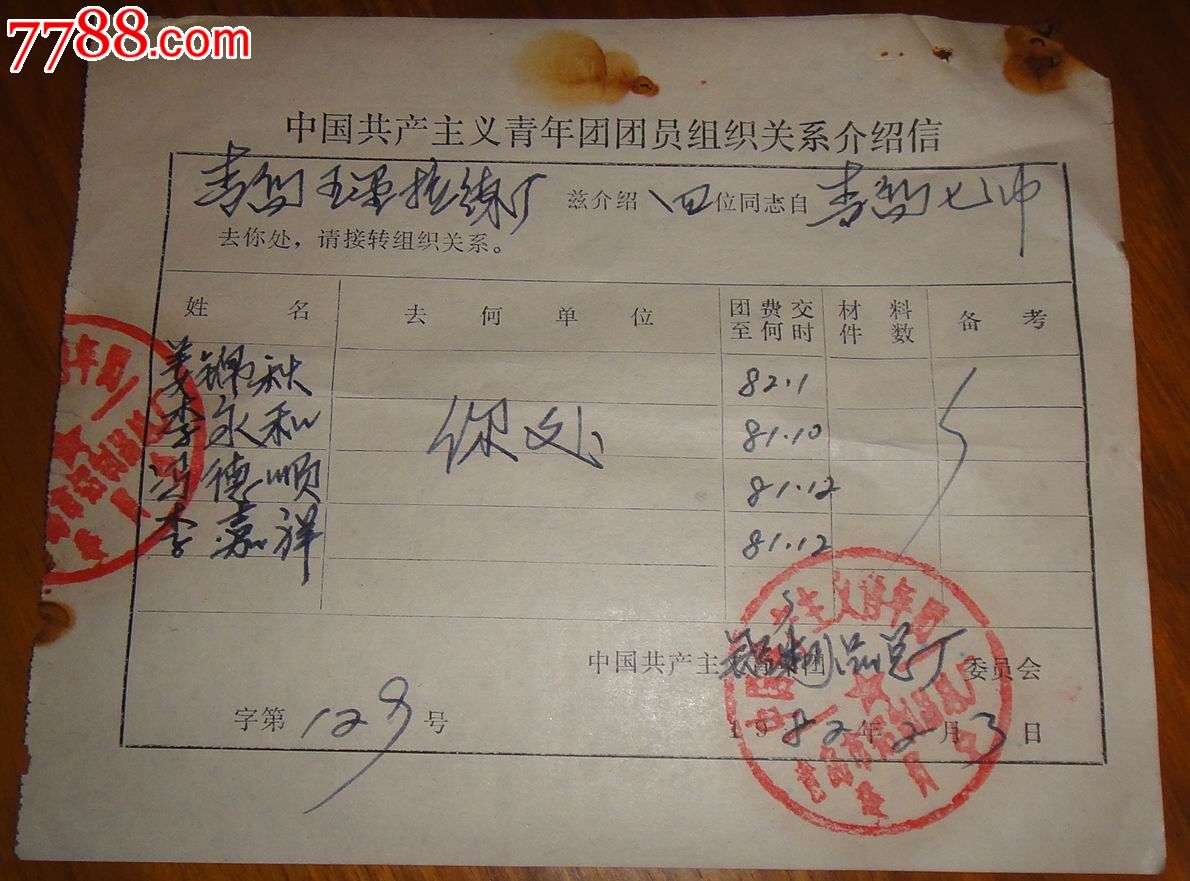 7788.com
中国共产主义青年团团员组织关系介绍信
青岛 兹介绍 四位同志自 青岛七中
去你处，请接转组织关系。
姓名 去何单位 团费交至何时 材料件数 备考
姜锦秋 82.1
李永和 你处 81.10
冯德顺 81.12
李嘉祥 81.12
中国共产主义青年团 制品总厂 委员会
字第 129 号 1982年2月3日